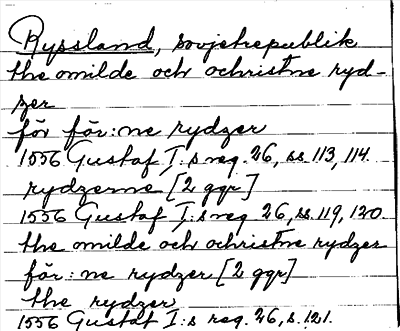 Ryssland, sovjetrepublik
the omilde och ochristne ryd-
zer
för för:ne rydzer
1556 Gustaf I:s reg. 26, ss. 113, 114.
rydzerne [2 ggr]
1556 Gustaf I:s reg. 26, ss. 119, 120.
the omilde och ochristne rydzer
för:ne rydzer [2 ggr]
the rydzer
1556 Gustaf I:s reg. 26, s. 121.